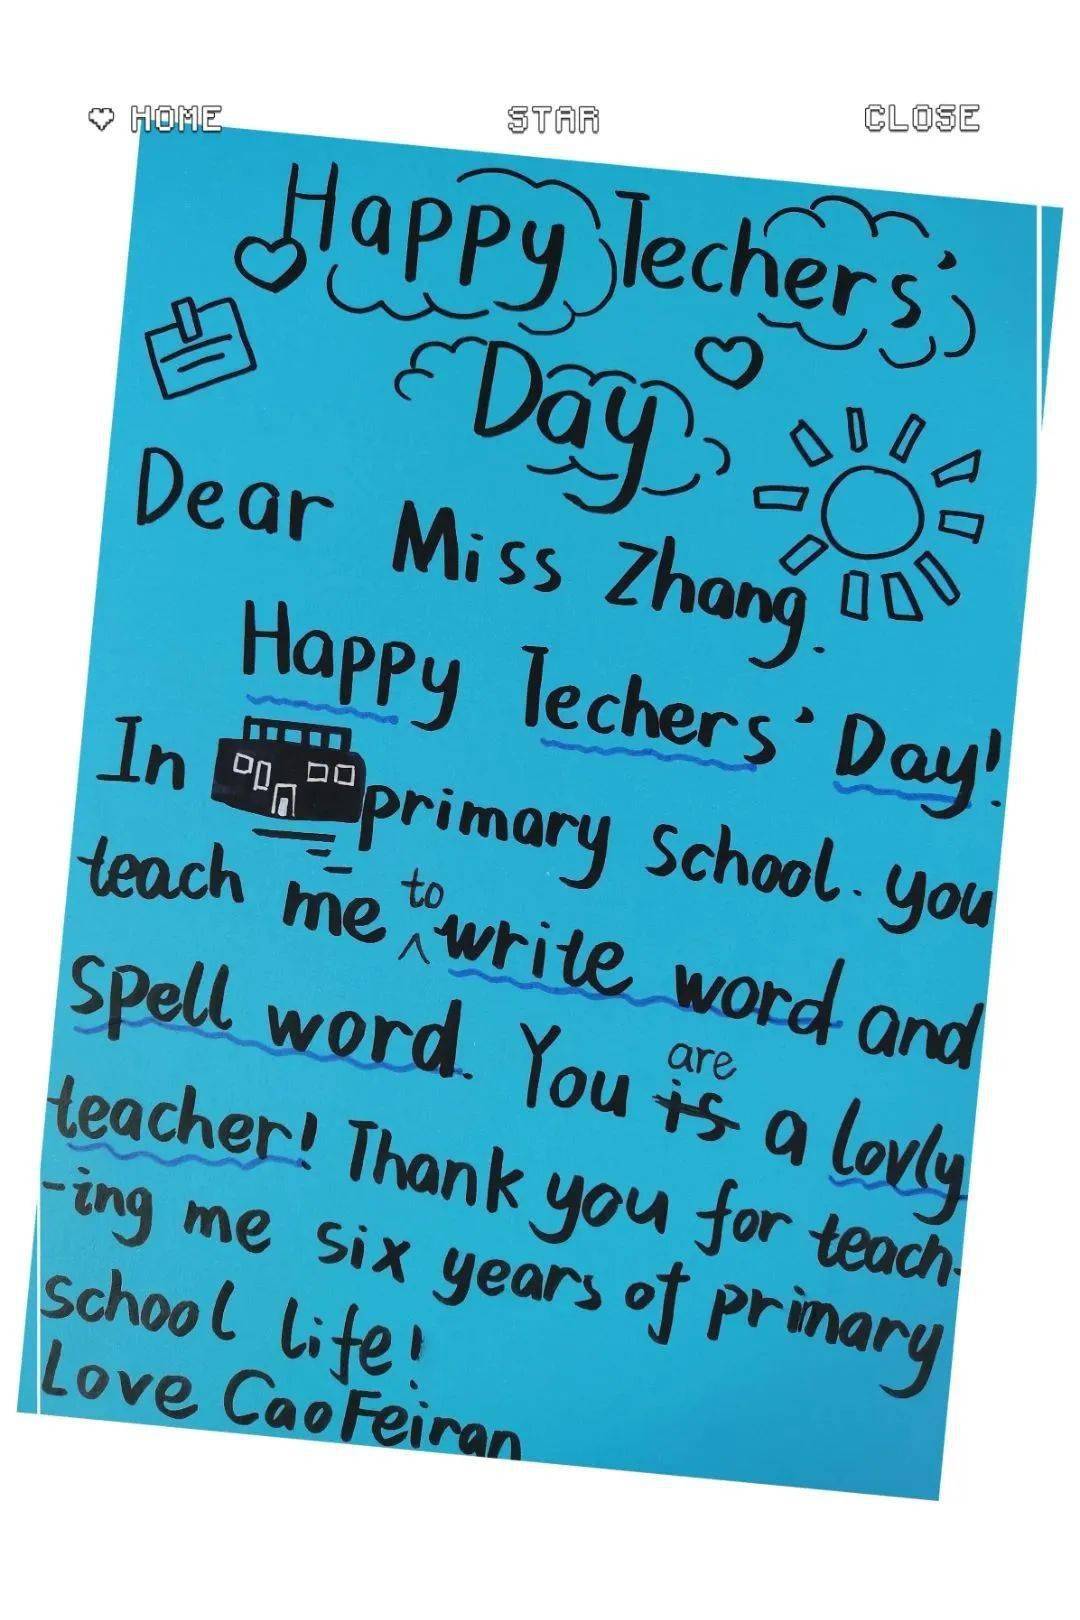 HOME STAR CLOSE
Happy Techers'
Day
Dear Miss Zhang.
Happy Techers' Day!
In primary school. you
teach me to write word and
spell word. You is are a lovly
teacher! Thank you for teach-
-ing me six years of primary
school life!
Love CaoFeiran